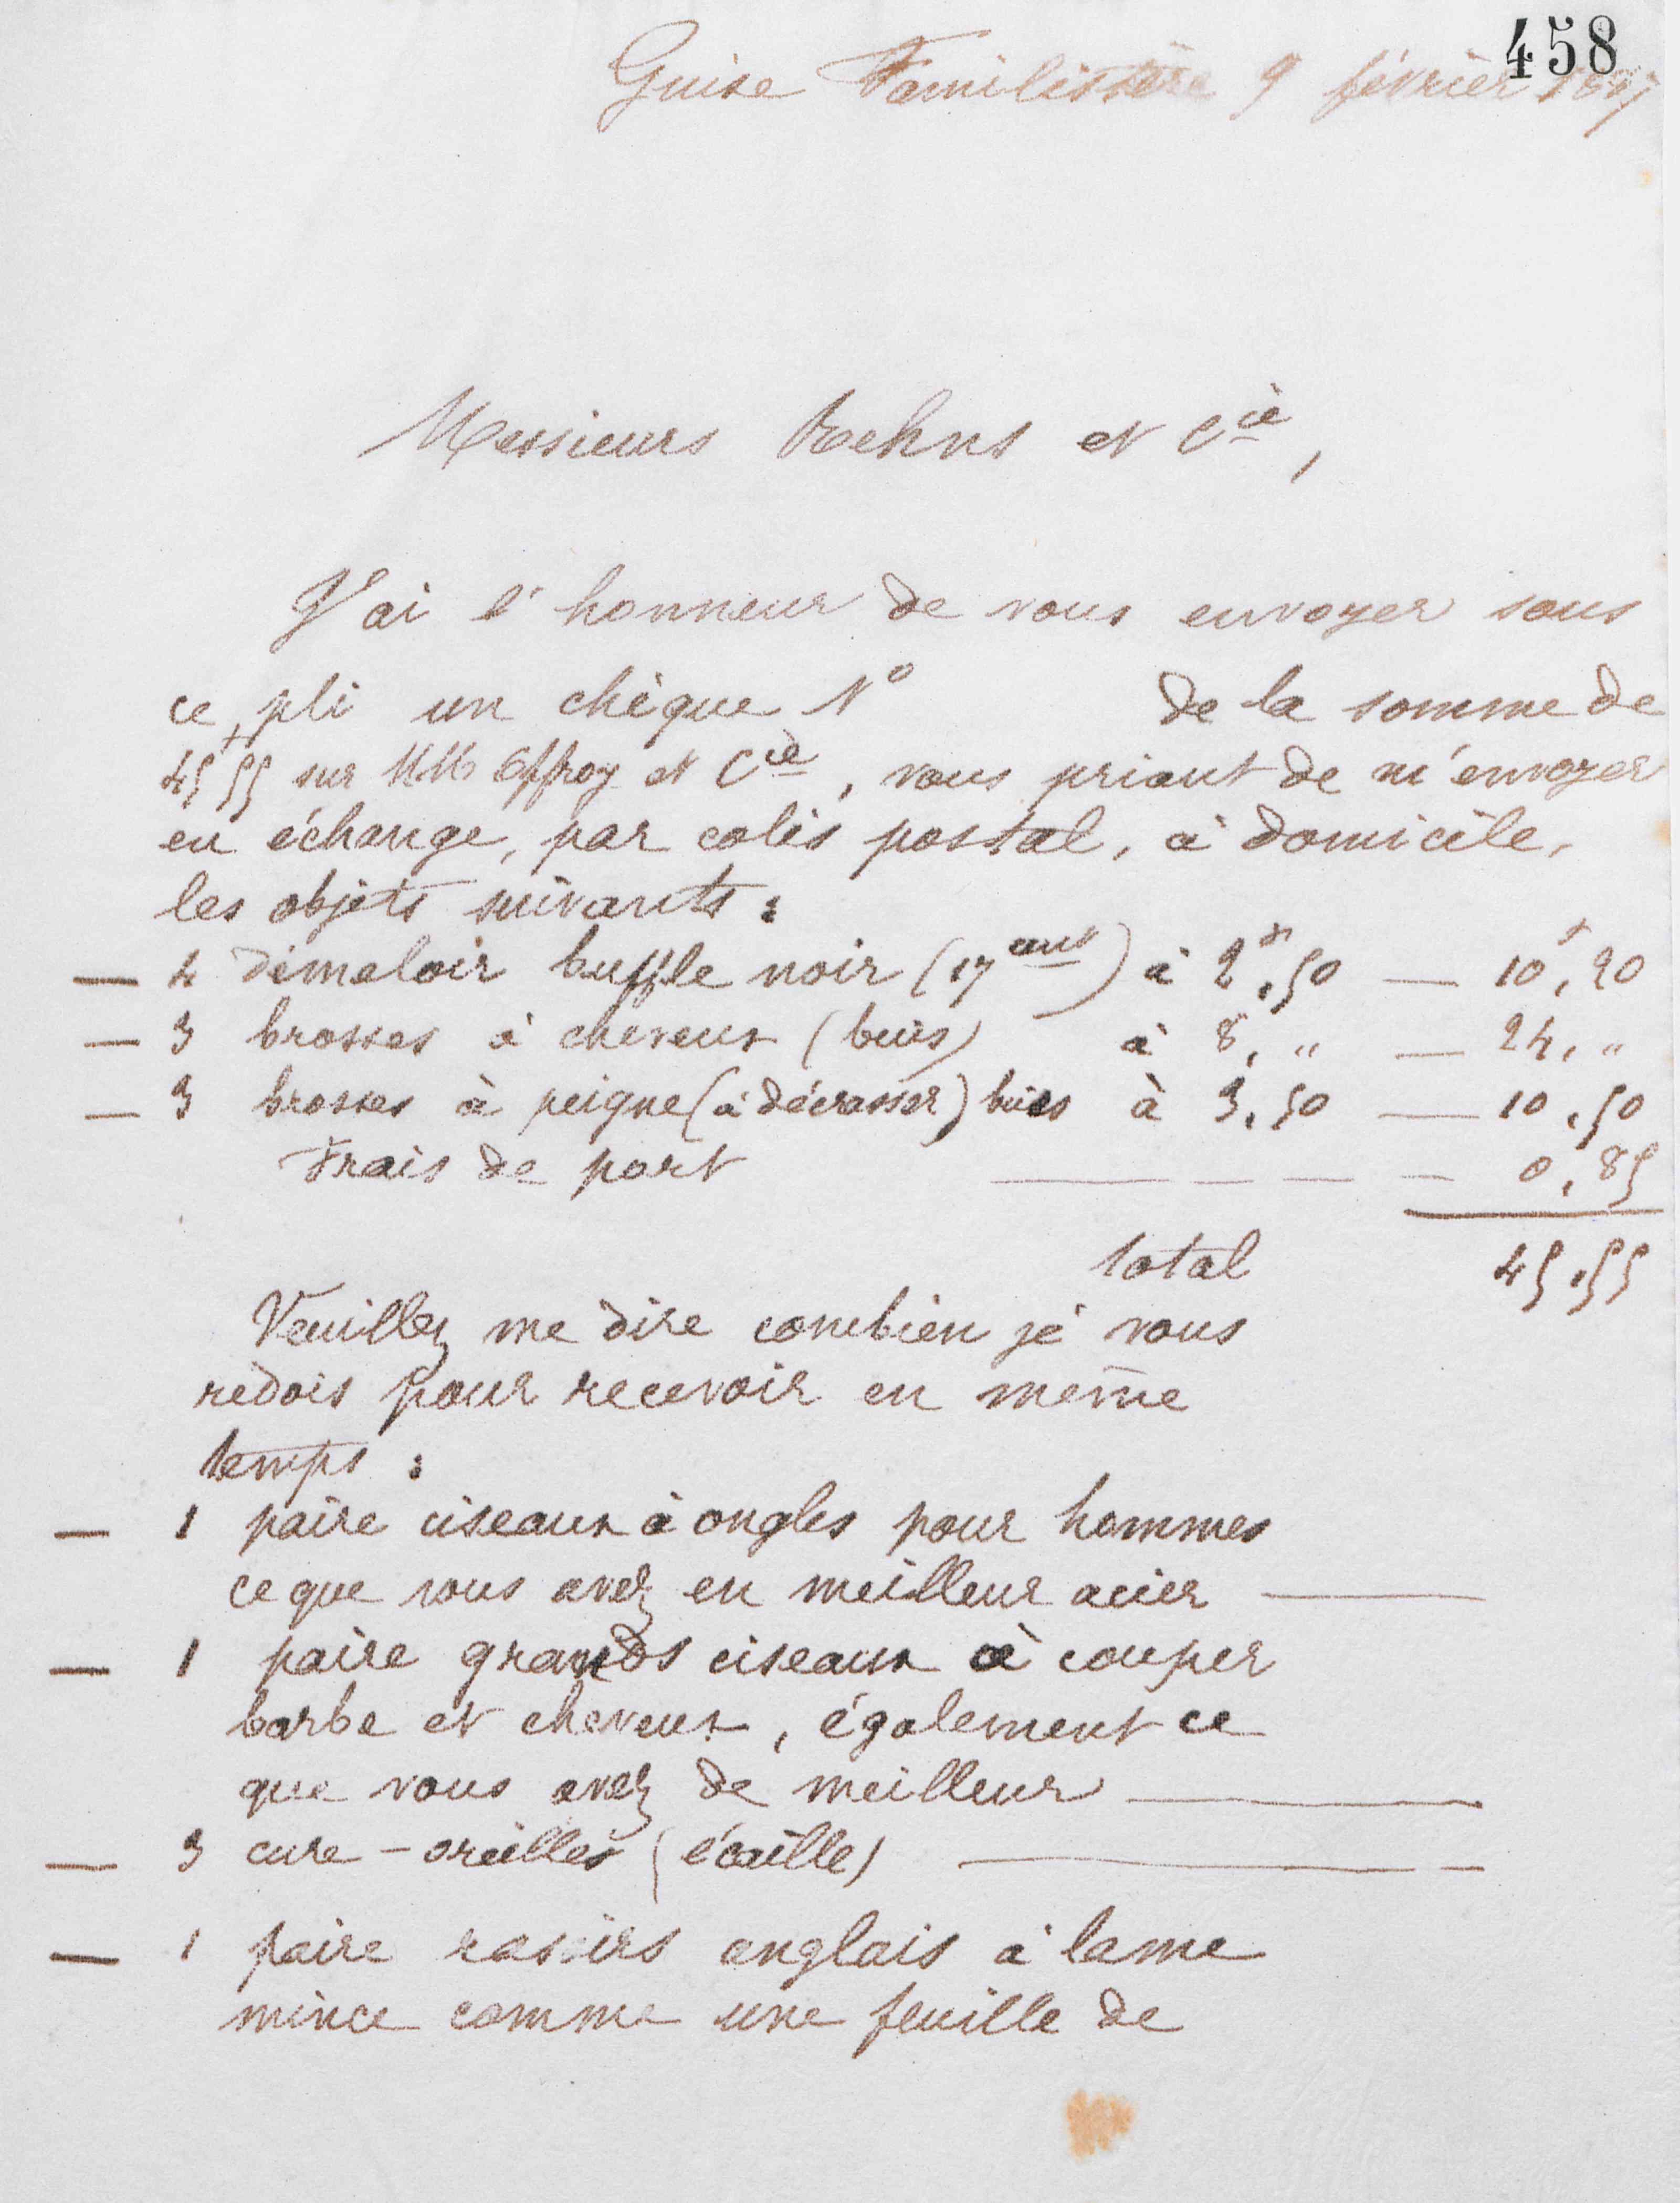 458
Guise Familistère 9 février
Messieurs Rehns et Cie,
J'ai l'honneur de vous envoyer sous
ce pli un chèque No de la somme de
45f55 sur MM Offroy et Cie, vous priant de m'envoyer
en échange, par colis postal, à domicile,
les objets suivants :
— 4 démeloir buffle noir (17 cent) à 2f,50 — 10f,20
— 3 brosses à cheveux (buis) à 8, " — 24, "
— 3 brosses à peigne (à décrasser) buis à 3,50 — 10,50
Frais de port — — — — 0,85
total 45,55
Veuillez me dire combien je vous
redois pour recevoir en même
temps :
— 1 paire ciseaux à ongles pour hommes
ce que vous avez en meilleur acier —
— 1 paire grands ciseaux à couper
barbe et cheveux, également ce
que vous avez de meilleur —
— 3 cure-oreilles (écaille) —
— 1 paire rasoirs anglais à lame
mince comme une feuille de